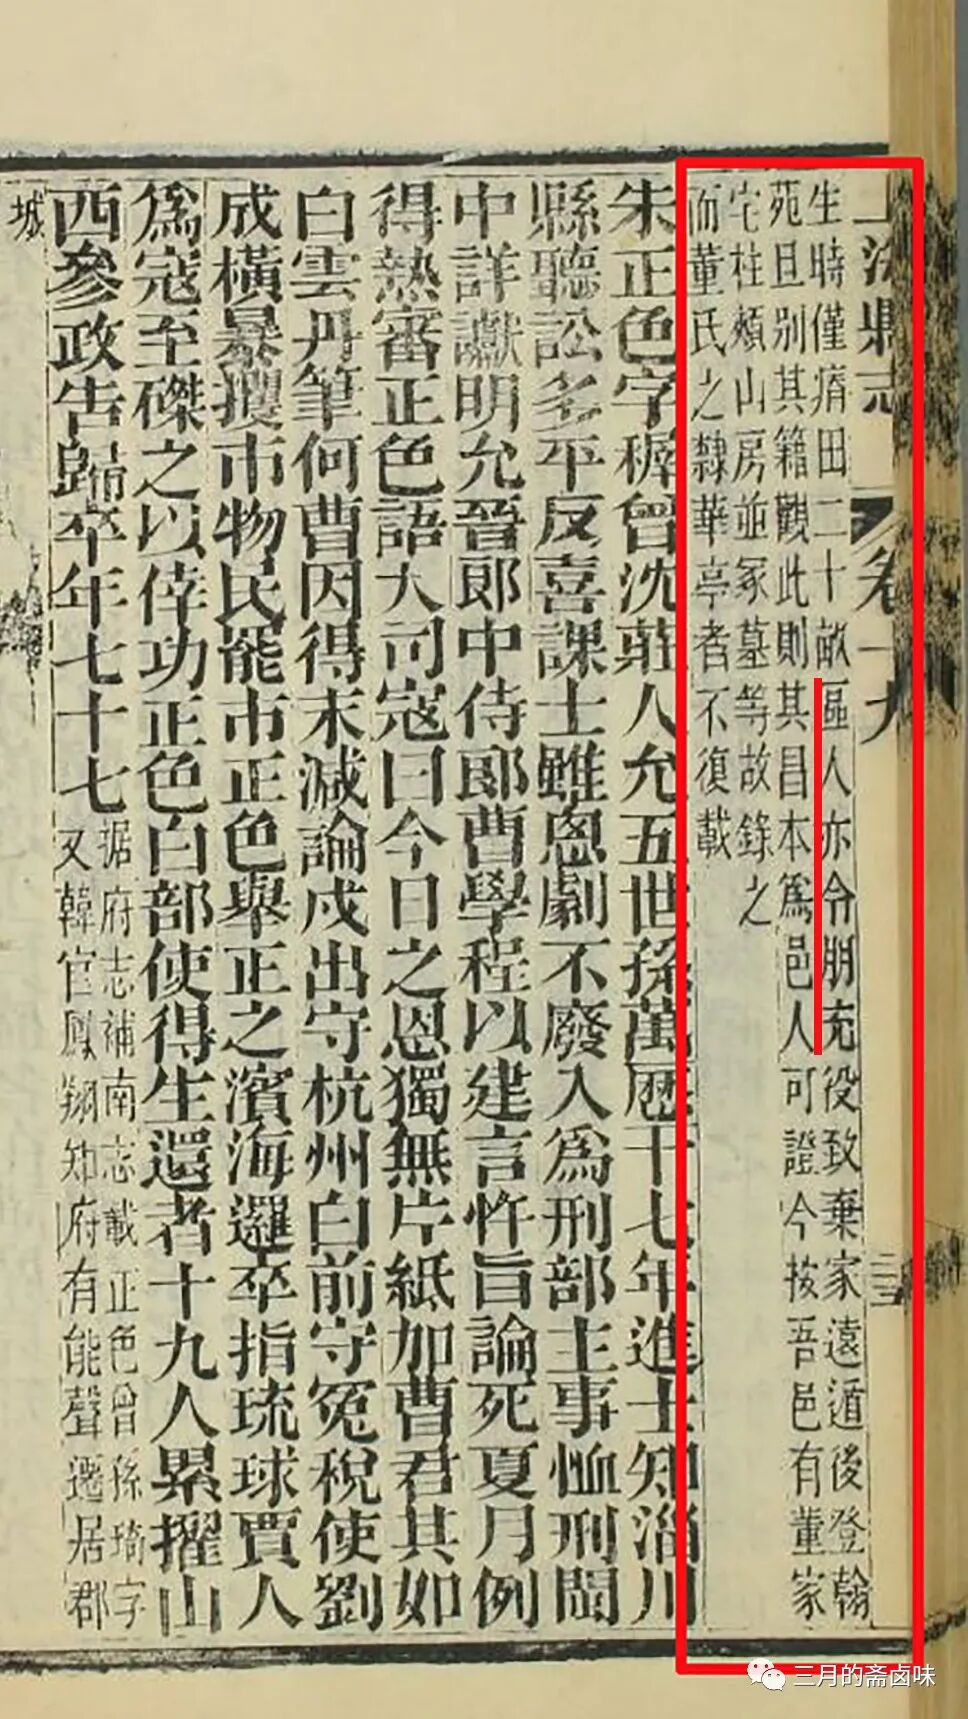 上海縣志 卷十九
生時僅瘠田二十畝區人亦令朋充役致棄家遠遁後登翰
苑且別其籍觀此則其昌本爲邑人可證今按吾邑有董家
宅柱頰山房並冢墓等故錄之
而董氏之隸華亭者不復載
朱正色字穉曾沈莊人允五世孫萬歷十七年進士知淄川
縣聽訟多平反喜課士雖悤劇不廢入爲刑部主事恤刑閩
中詳讞明允晉郎中侍郎曹學程以建言忤旨論死夏月例
得熱審正色語大司寇曰今日之恩獨無片紙加曹君其如
白雲丹筆何曹因得末減論戍出守杭州白前守冤稅使劉
成橫暴攫市物民罷市正色舉正之濱海邏卒指琉球賈人
爲寇至磔之以倖功正色白部使得生還者十九人累擢山
西參政告歸卒年七十七
据府志補南志載正色曾孫琦字
又韓官鳳翔知府有能聲遷居郡
城
三月的斋卤味